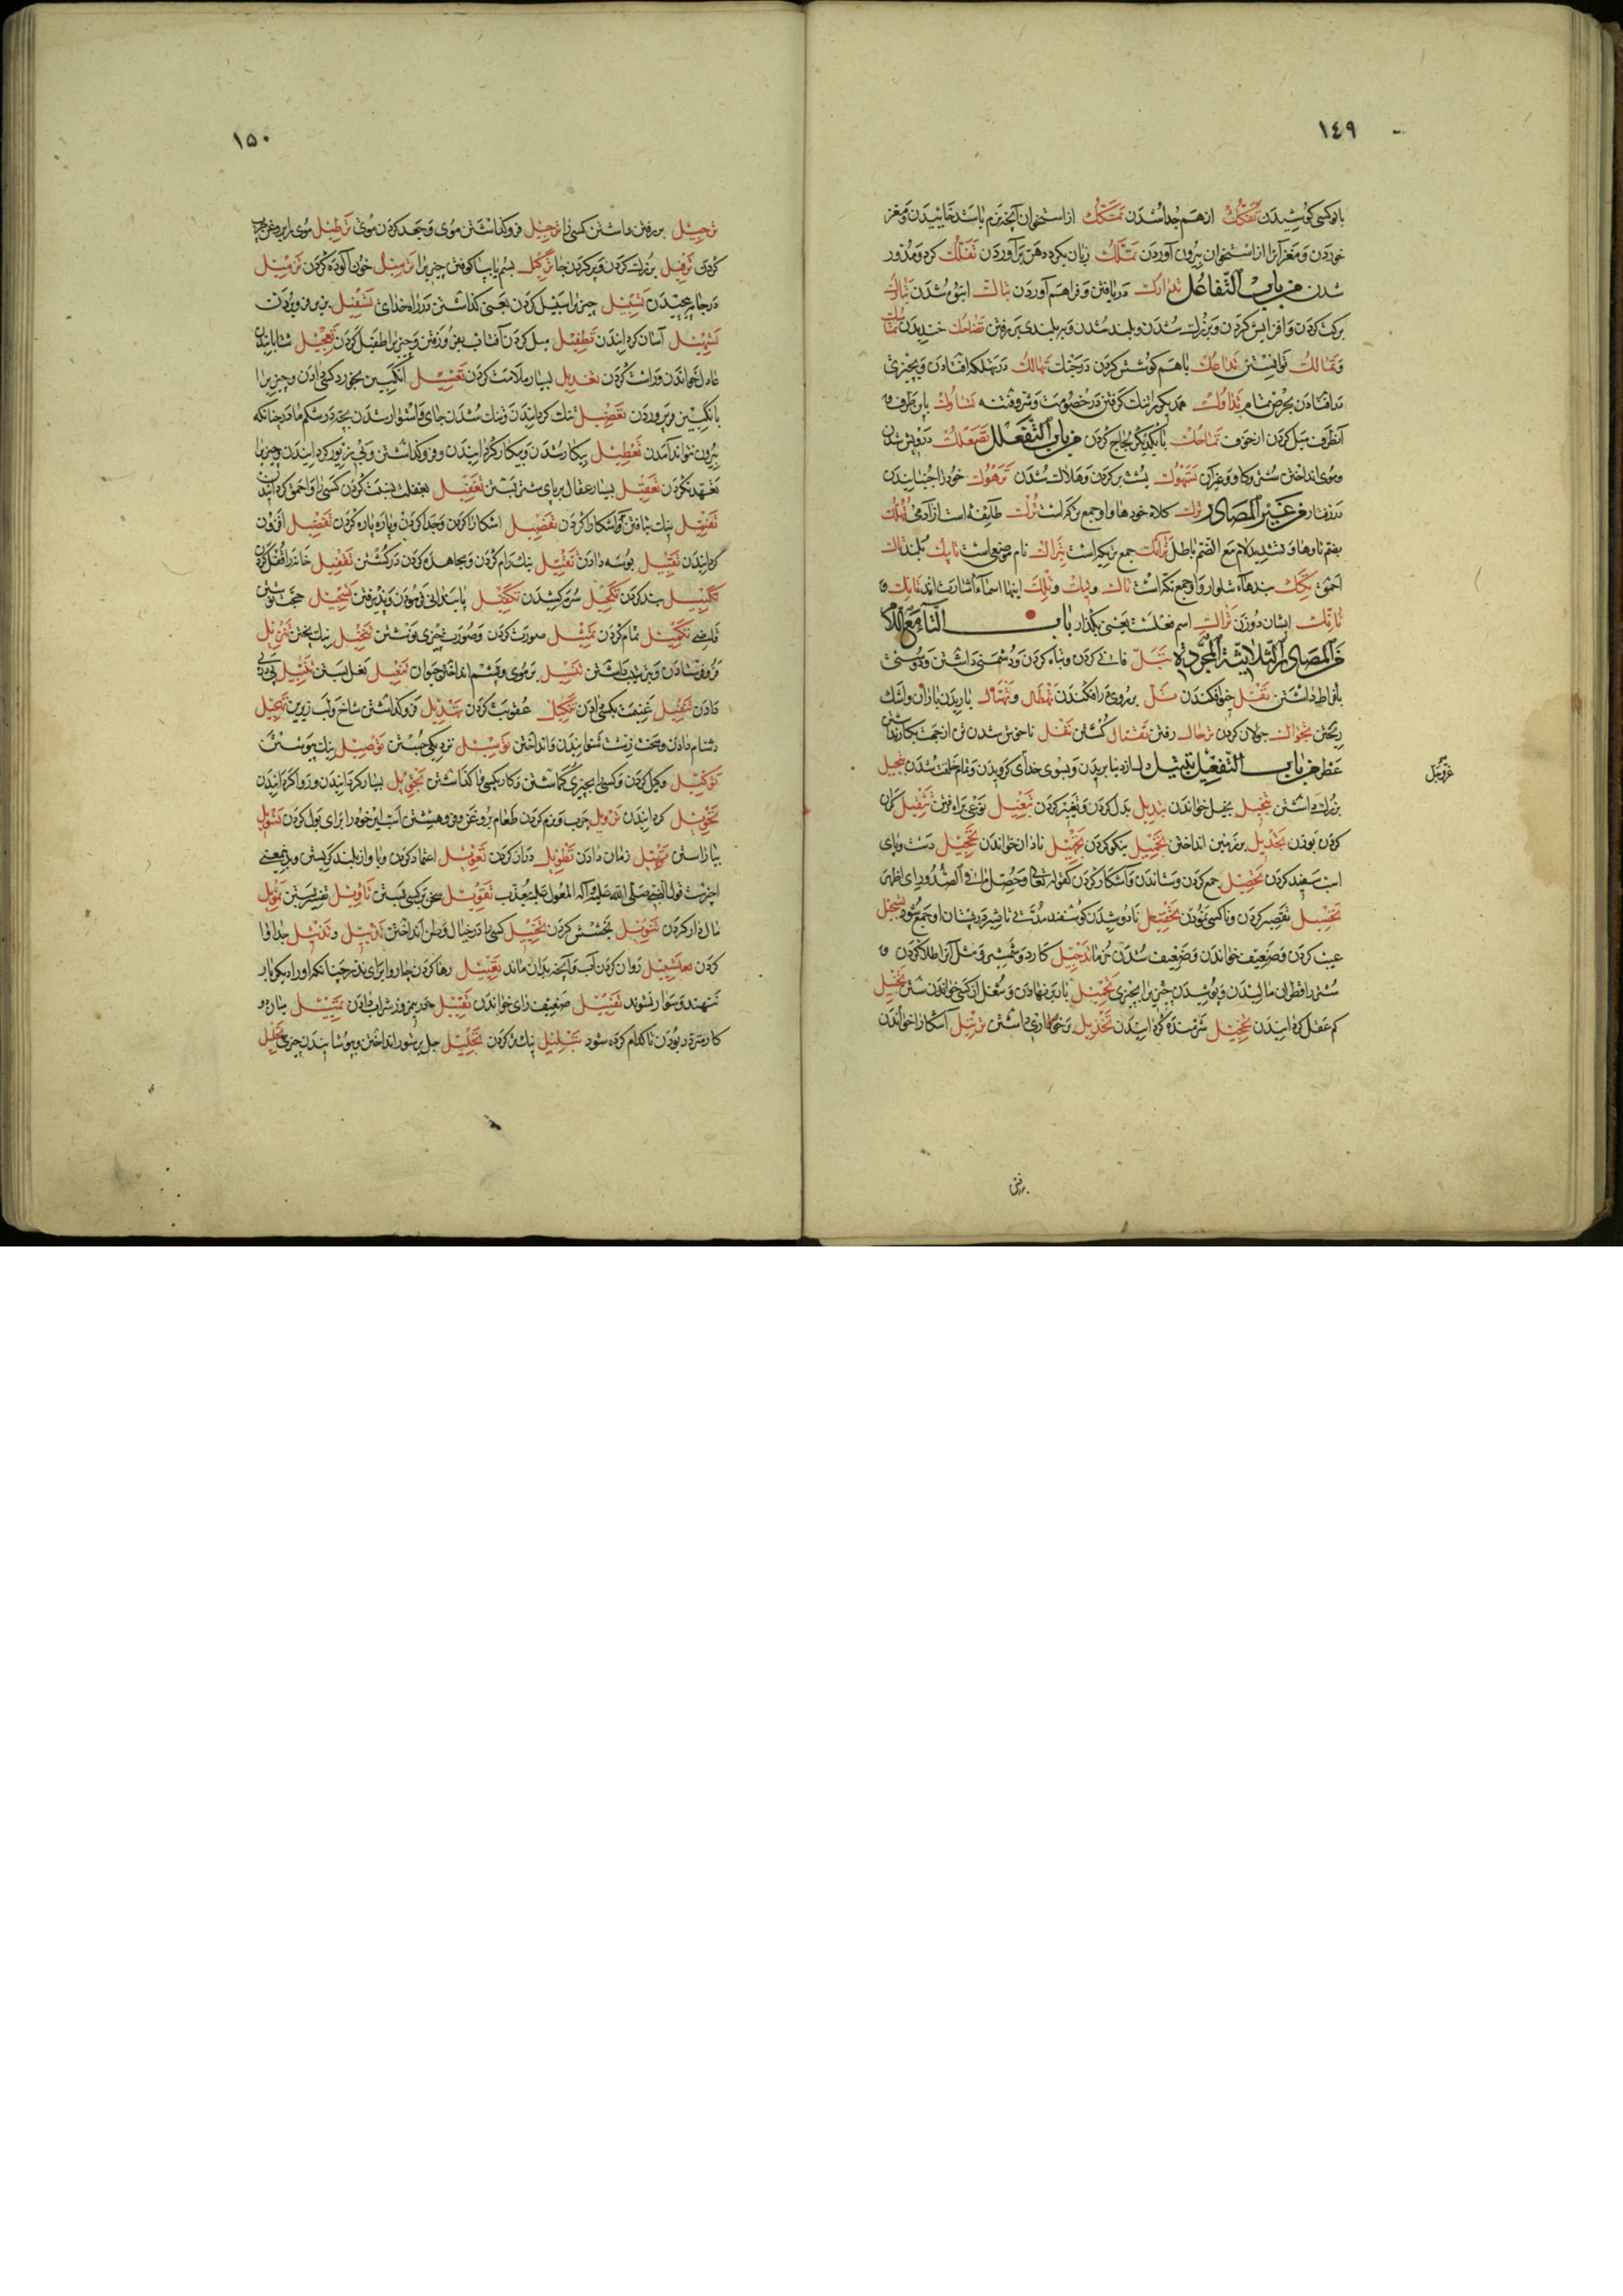 ١٤٩
با کوکسی کوشیدن تفکک از هم جدا شدن تمکک از استخوان آنچه نرم باشد خاییدن و مغز
خوردن و مغز آنرا از استخوان بیرون آوردن تملک زبان بکرد دهن برآوردن تفلک کرد و مدور
شدن من باب التفاعل تدارک دریافتن و فراهم آوردن انبوه شدن تبارک
برکت کردن و افزایش کردن و بزرگ شدن و بلند شدن و بر بلندی بر رفتن تضاحک خندیدن
و تمالک توانستن تداعک باهم کوشش کردن در جنک تهالک در تهلکه افتادن و بچیزی
در افتادن بحرص تمام همدیگر را تنک گرفتن در خصومت و شر و فتنه باین طرف و
آنطرف میل کردن از خوف تماحک با یکدیگر لجاج کردن من باب التفعلل تصعلک درویش شدن
و موی انداختن شتر و کاو و غیر آن تسهوک پشت بر کردن و هلاک شدن ترهوک خود را جنبانیدن
در رفتار من غیر المصادر ترک کلاه خودها و او جمع ترکه است ترک طایفه است از آدمی
بضم تا و ها و تشدید لام مع الضم باطل ترائک جمع تریکه است تبراک نام موضعی است
احمق تکک بندهاء شلوار و او جمع تکه است تاک و تیک و تلک اینها اسماء اشارت اند
ایشان دو زن تراک اسم فعلست یعنی بگذار باب التاء مع اللام
من المصادر الثلاثیة المجردة تبل فانی کردن و تباه کردن و دشمنی داشتن و دوستی
بافراط داشتن تفل خو افکندن تل بر روی در افکندن تهطال و تهتال باریدن باران و اشک
ریختن تجوال جولان کردن ترحال رفتن تقتال کشتن تفل ناخوش شدن تن از جهت بکار نداشتن
عطر من باب التفعیل تبتیل دل از دنیا بریدن و بسوی خدای کرویدن و تمام خلقت شدن تبجیل
عز و جل
بزرگ داشتن تبخیل بخیل خواندن تبدیل بدل کردن و تغییر کردن
کردن بودن تجدیل بر زمین انداختن تجمیل نیکو کردن تجهیل نادان خواندن تحجیل دست و پای
اسب سفید کردن تحصیل جمع کردن و ستاندن و آشکار کردن کقوله تعالی و حصل ما فی الصدور ای اظهر
تخسیل تقصیر کردن و ناکسی نمودن تحفیل نادوشیدن کوسفند مدتی تا شیر در پستان او جمع شود
عیب کردن و ضعیف خواندن و ضعیف شدن خرما تدجیل کارد و شمشیر و مثل آنرا طلا کردن و
شتر را قطران مالیدن و پوشیدن چیزی را بچیزی تحمیل بار بر نهادن و شغل از کسی خواندن
کم عقل کردانیدن تخجیل شرمنده کردانیدن تخذیل داشتن ترتیل آشکارا خواندن
بر رفتن
١٥٠
ترجیل بر رفتن داشتن کسی را ترجیل فرو گذاشتن موی و جعد کردن موی ترطیل موی را بروغن چرب
کردن ترفیل بزرگ کردن و پر کردن ترکیل بسم یا بپا کوفتن چیزی را ترمیل خون آلوده کردن تزمیل
در جامه پیچیدن تسبیل چیزی را سبیل کردن یعنی گذاشتن در راه خدای تسفیل بزیر فرو بردن
تسهیل آسان کردانیدن تطفیل میل کردن آفتاب بفرو رفتن و چیزی را طفیل کردن تعجیل شتابانیدن
عادل خواندن و راست کردن تعذیل بسیار ملامت کردن تعسیل انگبین بخورد کسی دادن و چیزی را
بانگبین پروردن تعضیل تنک کردانیدن و تنک شدن جای و استوار شدن بچه در شکم مادر چنانکه
بیرون نتواند آمدن تعطیل بیکار شدن و بیکار کردانیدن و فرو گذاشتن و بی زیور کردانیدن و چیزی را
تعهد نکردن تعقیل بسیار عقال بر پای شتر بستن تغفیل بغفلت نسبت کردن کسی را و احمق کردانیدن
تفتیل نیک تافتن تفصیل آشکارا کردن و جدا کردن و پاره پاره کردن تفضیل افزون
کردانیدن تقبیل بوسه دادن تقتیل نیک رام کردن و مجاهده کردن در کشتن تقفیل خانه را قفل کردن
تکبیل بند کردن تکحیل سرمه کشیدن تکفیل پایندانی فرمودن و پذیرفتن تسجیل حجت نوشتن
قاضی تکمیل تمام کردن تمثیل صورت کردن و صورت چیزی نوشتن تنخیل نیک بیختن تنزیل
فرو فرستادن و بترتیب داشتن تنسیل بر موی و پشم انداختن حیوان تنعیل نعل بستن
دادن تنفیل غنیمت بکسی دادن تنکیل عقوبت کردن تهدیل فرو گذاشتن شاخ و لب زیرین
دشنام دادن و سخت زشت شنوانیدن و انداختن توسیل نزدیکی جستن توصیل نیک پیوستن
توکیل وکیل کردن و کسی را بچیزی گماشتن و کار بکسی وا گذاشتن تجویل بسیار گردانیدن و روا کردانیدن
تحویل کردانیدن ترویل چرب و نرم کردن طعام بروغن و فرو هشتن اسب ایر خود را برای بول کردن تسویل
بیاراستن تمهیل زمان دادن تطویل دراز کردن تعویل اعتماد کردن و باواز بلند کریستن و بدین معنی
اخیر ست قول النبی صلی الله علیه و آله المعول علیه یعذب تقویل سخن بر کسی بستن تاویل تفسیر تمویل
مال دار کردن تنویل بخشش کردن تخییل کسی را در خیال و ظن انداختن تذییل و تدنیل جدا وا
کردن تسییل روان کردن آب و آنچه بدان ماند رها کردن چاروا برای نذر چنانکه او را در هیچ کار
ننهند و سوار نشوند تفییل ضعیف رای خواندن تقییل در نیمروز شراب دادن تمییل میان دو
کار متردد بودن تا کدام کرده شود تبلیل نیک تر کردن تجلیل جل بر ستور انداختن و پوشانیدن چیزی